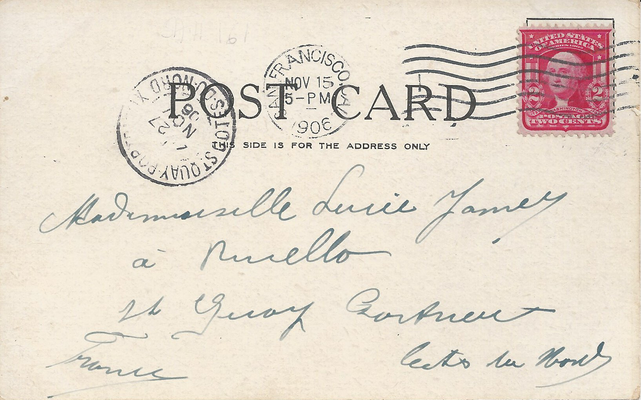 SAN FRANCISCO, CAL.
NOV 15
5-PM
1906
UNITED STATES
OF AMERICA
2 2
POSTAGE
TWO CENTS
POST CARD
THIS SIDE IS FOR THE ADDRESS ONLY
ST QUAY-PORTRIEUX
CÔTES-DU-NORD
27
06
Mademoiselle Lucie Jamey
à
St Quay Portrieux
France Côtes du Nord